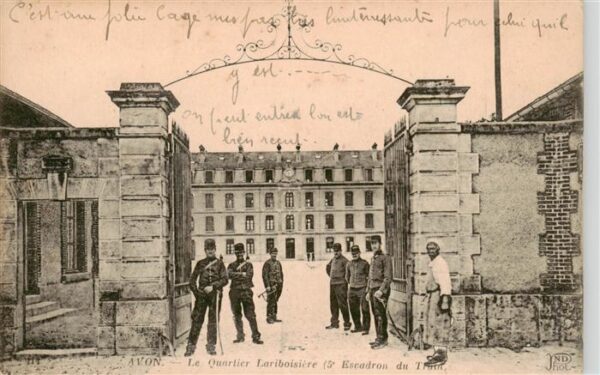 C'est une jolie Cage mes pas bas lintéressante pour celui quil
y est.
on peut entrée lon est
bien recut.
AVON. - Le Quartier Lariboisière (5e Escadron du Train)
ND
Phot